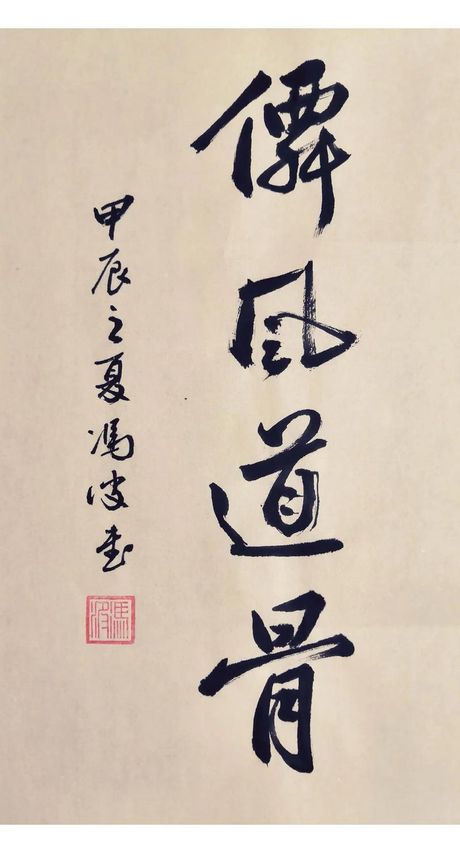 僊風道骨
甲辰之夏馮波書
馮波